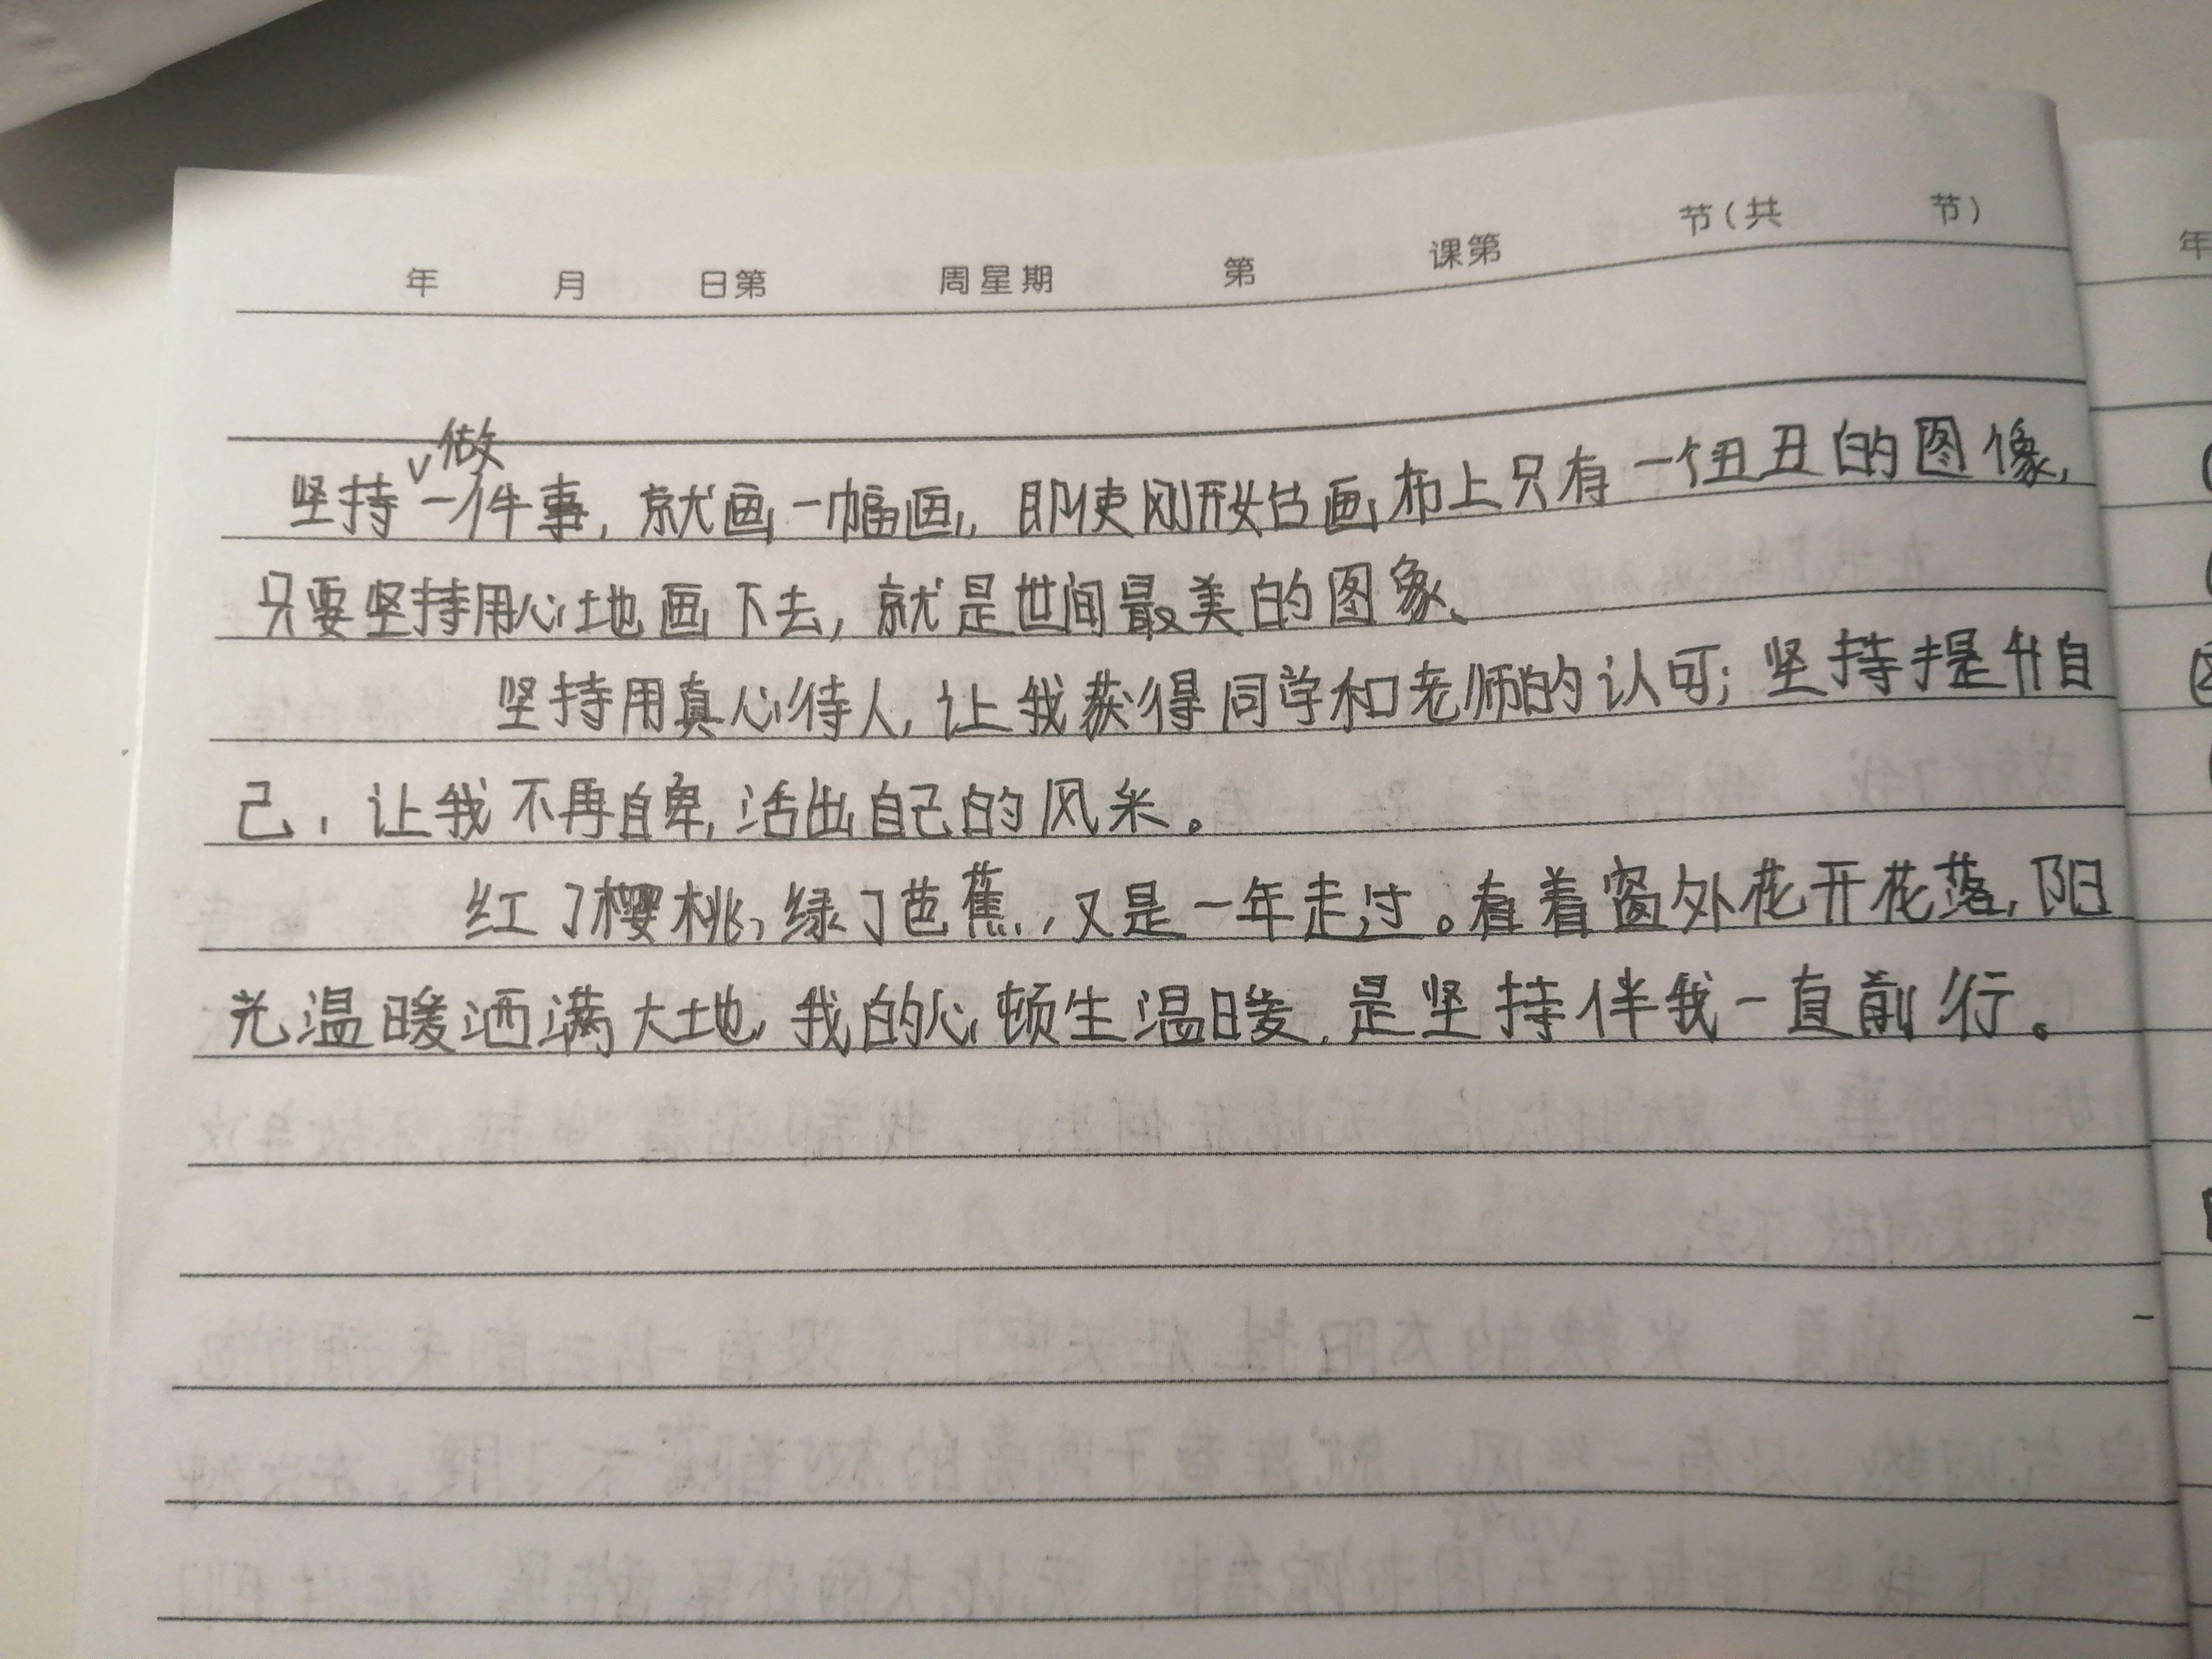 年 月 日第 周星期 第 课第 节(共 节)
坚持做一件事,就画一幅画,即使刚开始画布上只有一个丑丑的图像,
只要坚持用心地画下去,就是世间最美的图象、
坚持用真心待人,让我获得同学和老师的认可;坚持提升自
己,让我不再自卑,活出自己的风采。
红了樱桃,绿了芭蕉,又是一年走过。看着窗外花开花落,阳
光温暖洒满大地,我的心顿生温暖,是坚持伴我一直前行。
年